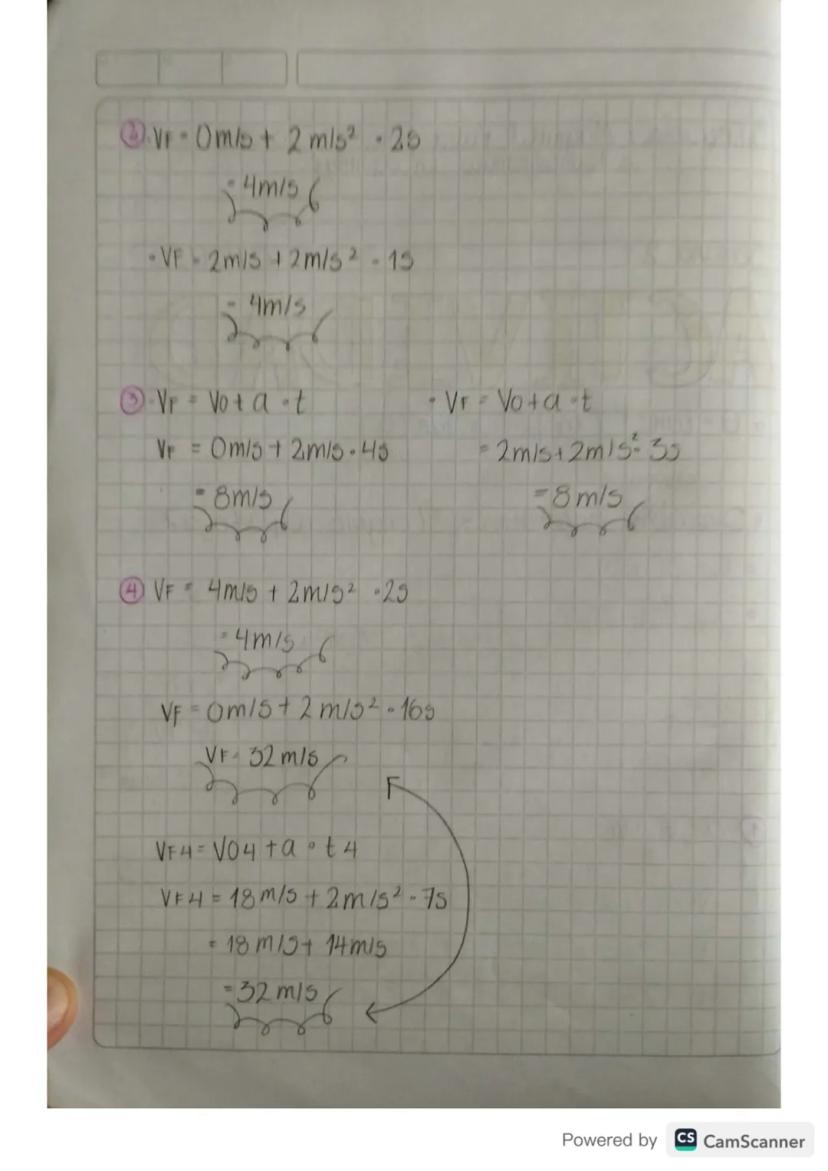 ② VF = 0m/s + 2 m/s² · 2s
= 4m/s
· VF = 2m/s + 2m/s² · 1s
= 4m/s
③ · VF = Vo + a · t
VF = 0m/s + 2m/s · 4s
= 8m/s
· VF = Vo + a · t
= 2m/s + 2m/s² · 3s
= 8m/s
④ VF = 4m/s + 2m/s² · 2s
= 4m/s
VF = 0m/s + 2 m/s² · 16s
VF = 32 m/s
VF4 = Vo4 + a · t4
VF4 = 18 m/s + 2m/s² · 7s
= 18 m/s + 14m/s
= 32 m/s
Powered by CS CamScanner